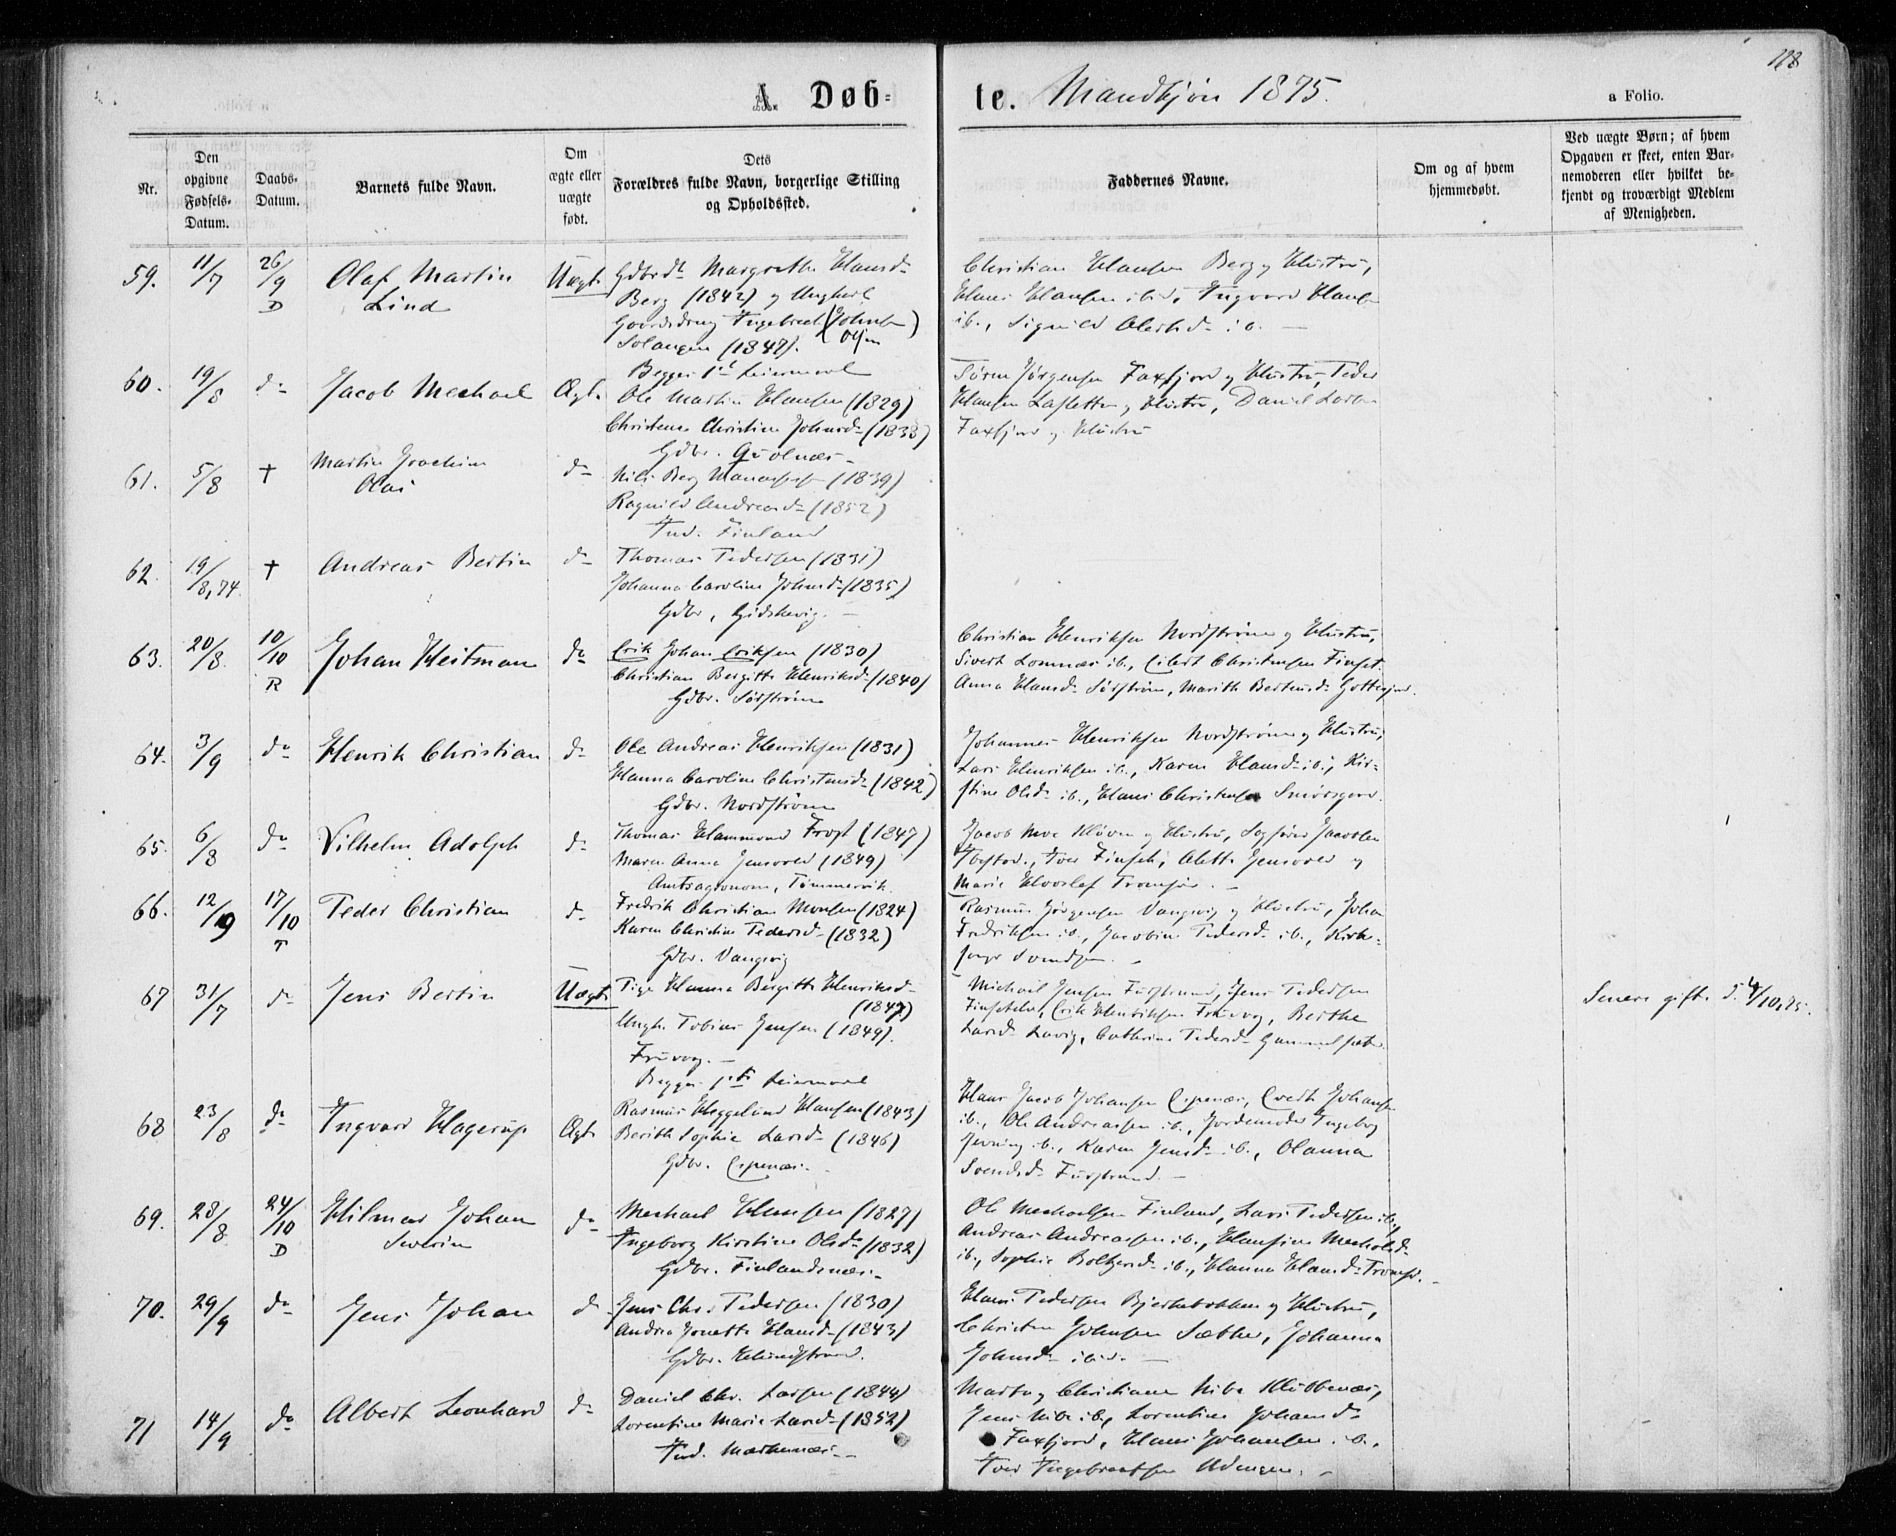 128
A. Døb-
te. Mandkjøn 1875.
a Folio.
Nr.
Den
opgivne
Fødsels-
Datum.
Daabs-
Datum.
Barnets fulde Navn.
Om
ægte eller
uægte
født.
Dets
Forældres fulde Navn, borgerlige Stilling
og Opholdssted.
Faddernes Navne.
Om og af hvem
hjemmedøbt.
Ved uægte Børn; af hvem
Opgaven er skeet, enten Bar-
nemoderen eller hvilket be-
kjendt og troværdigt Medlem
af Menigheden.
59. 11/7 26/9 D Olaf Martin
Lind
Uægt.
Margrethe Hansd.
Berg (1842) og Ungkarl
Ingebret (Johns.)
Olsen
(1847).
Begges 1ste Leiermaal
Christian Hansen Berg og Hustru,
Hans Hansen ibid., Ingvard Hansen
ib., Signild Olesd. ib.
60. 19/8 do Jacob Mechael Ægt.
Ole Martin Hansen (1829)
Christense Christine Johnsd. (1838)
Gdbr.
Søren Jørgensen Faxfjord og Hustru, Peder
Hansen og Hustru, Daniel Larsen
Faxfjord og Hustru
61. 5/8 † Martin Joachim
Olai
do
Nils Berg (1839)
Ragnild Andreasd. (1852)
Ind. Finland
62. 19/8, 74. † Andreas Bertin do
Thomas Pedersen (1831)
Johanna Caroline Johnsd. (1835)
Gdbr.
63. 20/8. 10/10 R Johan Heitman do
Erik Johan Eriksen (1830)
Christian Bergitte Henriksd. (1840)
Gdbr. Sørstrøm
Christian Henriksen Nordstrøm og Hustru,
Sivert Lomnæs ib., Christensen Finset.
Anna Hansd. Sørstrøm, Marith Bertensd.
64. 3/9 do Henrik Christian do
Ole Andreas Henriksen (1831)
Hanna Caroline Christensd. (1842)
Gdbr. Nordstrøm
Johannes Henriksen Nordstrøm og Hustru,
Lars Henriksen ib., Karen Hansd. ib., Kir-
stine Olsd. ib., Hans Christensen
65. 6/8 do Vilhelm Adolph do
Thomas Hammond Frost (1847)
Maren Anna Jensvold (1849)
Amtsagronom, Tømmervik.
Jacob og Hustru, Jacobsen
Iver Alette Jensvold og
Marie Tromsø.
66. 12/9 17/10 T Peder Christian do
Fredrik Christian Monsen (1824)
Karen Christine Pedersd. (1832)
Gdbr. Vangsvig
Rasmus Jørgensen Vangsvig og Hustru, Johan
Fredriksen ib., Jacobine Pedersd. ib., Kirke-
sanger Svendsen.
67 31/7 do Jens Bertin Uægt.
Pige Hanna Bergitte Henriksd.
(1847)
Ungk. Tobias Jensen (1849).
Begges 1ste Leiermaal
Michael Jensen Jens Pedersen
Erik Henriksen Berthe
Larsd. Cathrine Pedersd.
Senere gift. 4/10, 75.
68 23/8 do Ingvard Hagerup Ægt.
Rasmus Heggelund Hansen (1843)
Berith Sophie Larsd. (1846)
Gdbr. Espenæs.
Hans Jacob Johansen Espenæs, Johansen
ib., Ole Andreassen ib., Jordemoder Ingeborg
ib., Karen Jensd. ib., Olanna
Svendsd.
69. 28/8 24/10 D Hilmar Johan
Severin
do
Mechael Hansen (1827)
Ingeborg Kirstine Olsd. (1832)
Gdbr. Finlandsnæs.
Ole Mechaelsen Finland, Lars Pedersen ib.,
Andreas Andreassen ib., Hansine Mechelsd.
ib., Sophie ib., Hanna Hansd. Tromsø.
70. 29/9 do Jens Johan do
Jens Chr. Pedersen (1830)
Andrea Jonette Hansd. (1843)
Gdbr.
Hans Pedersen Bjerkebakken og Hustru,
Christen Johnsen Sæther, Johanna
Johnsd. ibid.
71 14/9 do Albert Leonhard do
Daniel Chr. Larsen (1844)
Lorentine Marie Larsd. (1852)
Ind.
og Christiane
Jens ib., Lorentine Johansd.
Faxfjord, Hans Johansen ib.,
Iver Ingebretsen